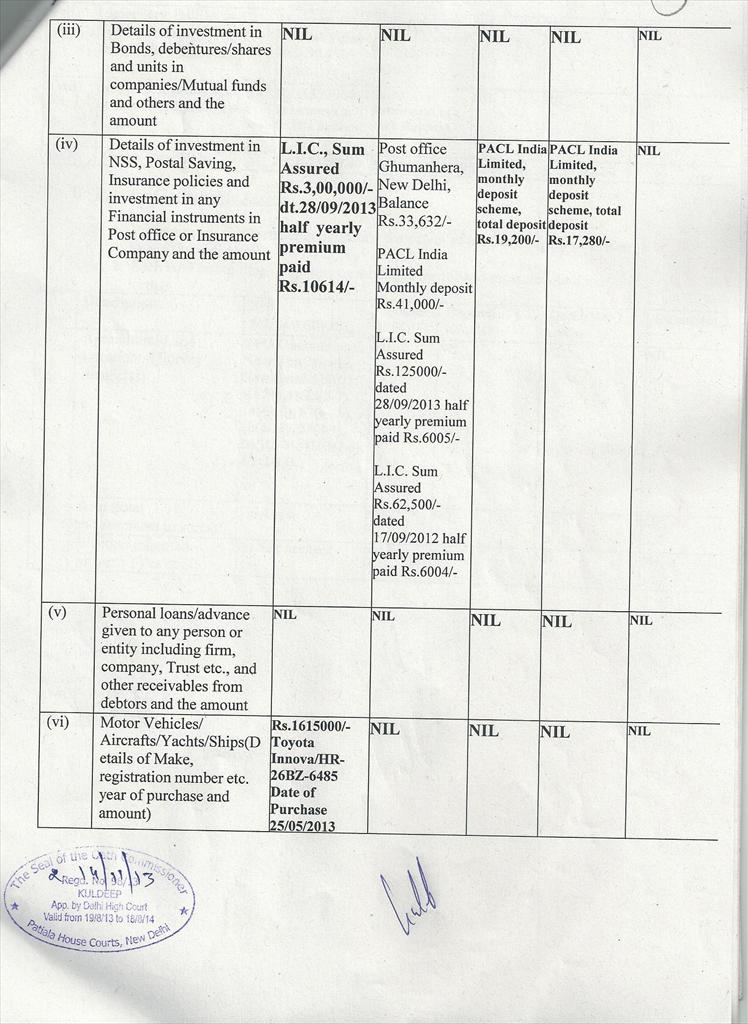 (iii) Details of investment in NIL NIL NIL NIL NIL
Bonds, debentures/shares
and units in
companies/Mutual funds
and others and the
amount
(iv) Details of investment in
NSS, Postal Saving,
Insurance policies and
investment in any
Financial instruments in
Post office or Insurance
Company and the amount
L.I.C., Sum
Assured
Rs.3,00,000/-
dt.28/09/2013
half yearly
premium
paid
Rs.10614/-
Post office
Ghumanhera,
New Delhi,
Balance
Rs.33,632/-
PACL India
Limited
Monthly deposit
Rs.41,000/-
L.I.C. Sum
Assured
Rs.125000/-
dated
28/09/2013 half
yearly premium
paid Rs.6005/-
L.I.C. Sum
Assured
Rs.62,500/-
dated
17/09/2012 half
yearly premium
paid Rs.6004/-
PACL India
Limited,
monthly
deposit
scheme,
total deposit
Rs.19,200/-
PACL India
Limited,
monthly
deposit
scheme, total
deposit
Rs.17,280/-
NIL
(v) Personal loans/advance NIL NIL NIL NIL NIL
given to any person or
entity including firm,
company, Trust etc., and
other receivables from
debtors and the amount
(vi) Motor Vehicles/
Aircrafts/Yachts/Ships(D
etails of Make,
registration number etc.
year of purchase and
amount)
Rs.1615000/-
Toyota
Innova/HR-
26BZ-6485
Date of
Purchase
25/05/2013
NIL NIL NIL NIL
The Seal of the Oath Commissioner
14/11/13
Regd. No.
KULDEEP
App. by Delhi High Court
Valid from 19/8/13 to 18/8/14
Patiala House Courts, New Delhi